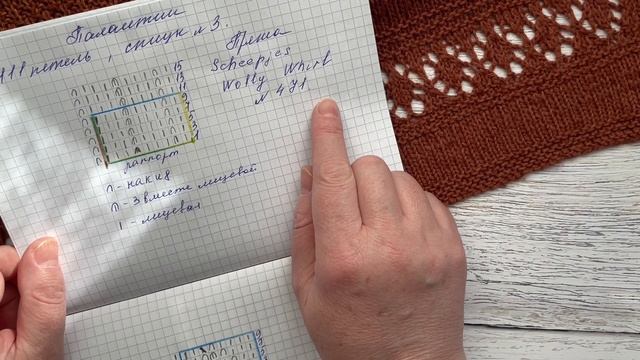 Палантин
111 петель, спицы №3.
Пряжа
Scheepjes
Wolly Whirl
N 471
15
13
11
9
7
1
раппорт
∩ - накид
- 3 вместе лицевой
I - лицевая